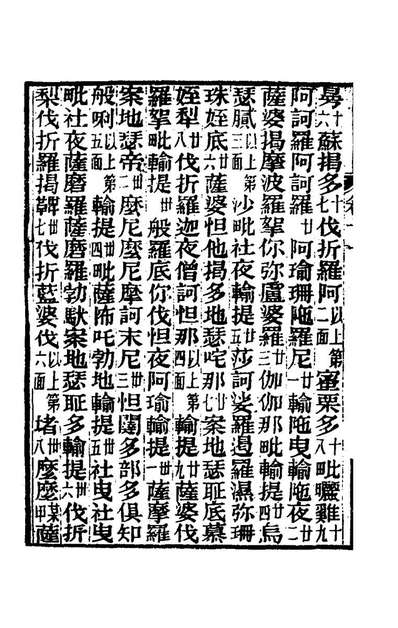 蘇揭多十七伐折羅阿以上第二面蜜栗多十八毗曬雞十九
阿訶羅阿訶羅廿阿瑜珊陁羅尼廿一輸陁曳輸陁夜廿二
薩婆揭摩波羅拏你弥盧婆羅廿三伽伽那毗輸提廿四烏
瑟膩以上第三面沙毗社夜輸提廿五莎訶娑羅遏羅濕弥珊
珠姪底廿六薩婆怛他揭多地瑟咤那廿七案地瑟耻底慕
姪犁廿八伐折羅迦夜僧訶怛那以上第四面輸提廿九薩婆伐
羅拏毗輸提卅般羅底你伐怛夜阿瑜輸提卅一薩摩羅
案地瑟帝卅二麼尼麼尼摩訶末尼卅三怛闥多部多俱知
般唎以上第五面輸提卅四毗薩怖吒勃地輸提卅五社曳社曳
毗社夜薩磨羅薩磨羅勃馱案地瑟耻多輸提卅六伐折
梨伐折羅揭鞞卅七伐折藍婆伐以上第六面堵卅八麼麼某甲薩